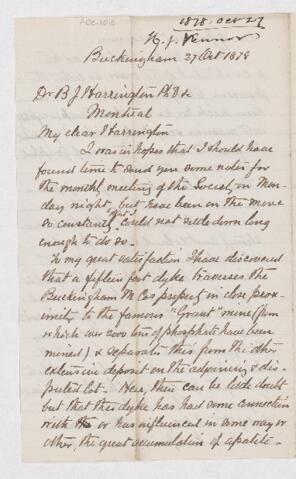 1878. Oct 27
H. G. Vennor
Buckingham 27 Oct 1878
Dr B J Harrington Ph D &
Montreal
My dear Harrington
I was in hopes that I should have
found time to send you some notes for
the monthly meeting of the Society on Mon-
day night, but have been on the move
so constantly that I could not settle down long
enough to do so.
To my great satisfaction I have discovered
that a fifteen foot dyke traverses the
Buckingham M Cos property in close prox-
imity to the famous "Grant" mine (from
which over 2000 tons of phosphate have been
mined) & separates this from the other
extensive deposit on the adjoining & dis-
puted lot. Now, there can be little doubt
but that this dyke has had some connection
with or has influenced in some way or
other, the great accumulation of apatite.